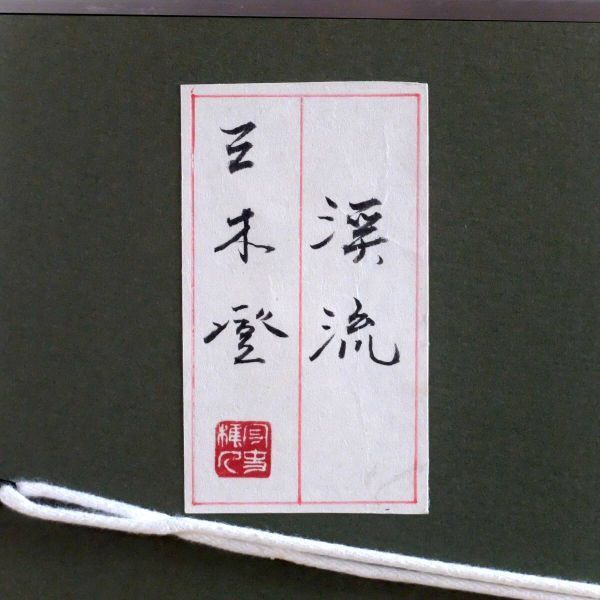 渓流
三木登